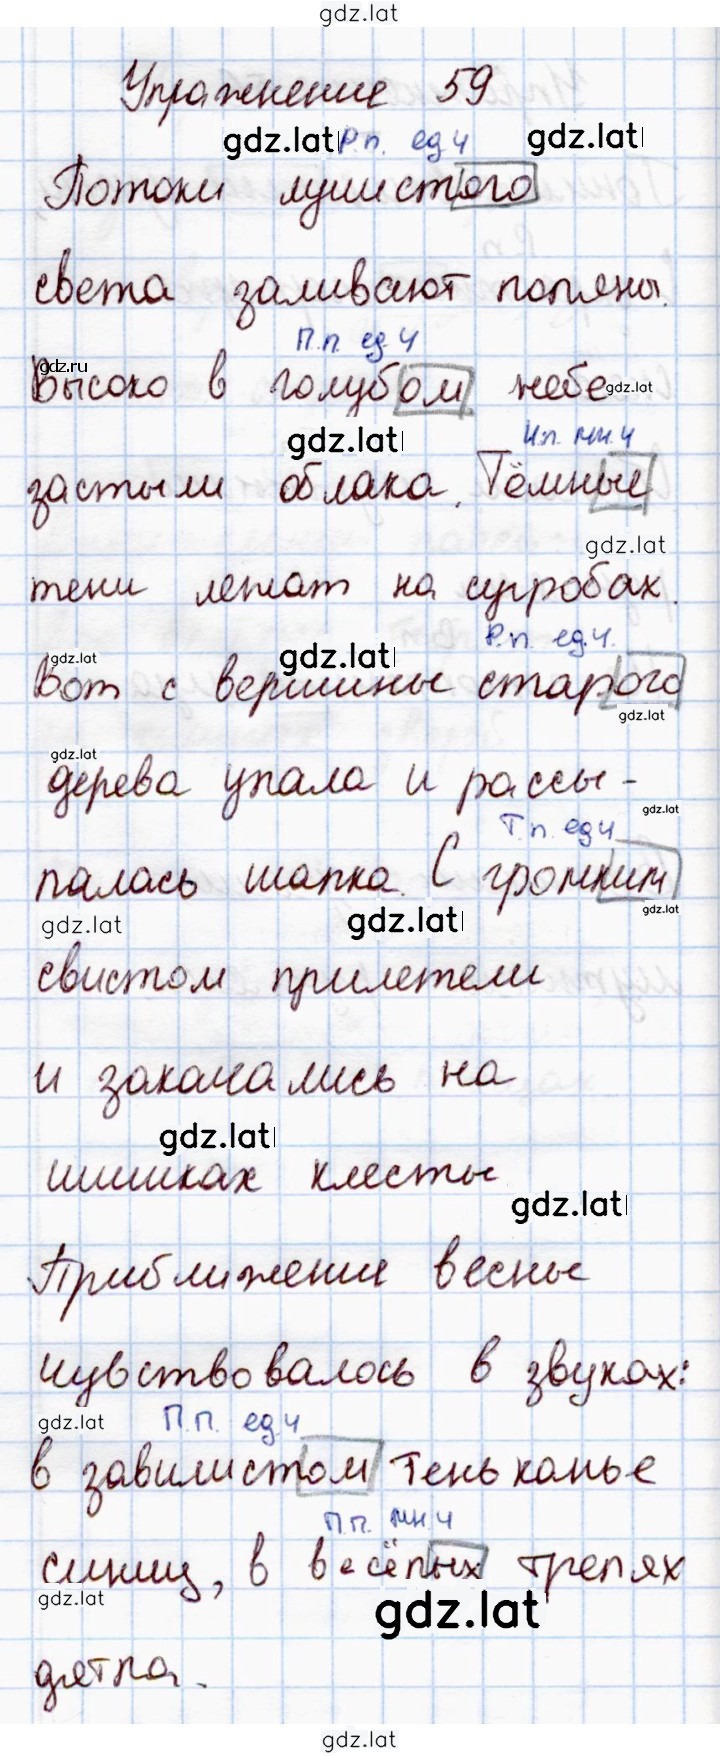 gdz.lat
Упражнение 59
gdz.lat Р.п. ед.ч gdz.lat
Потоки лучистого
света заливают поляны.
П.п. ед.ч
gdz.ru
Высоко в голубом небе gdz.lat
gdz.lat И.п. мн.ч
застыли облака. Тёмные
gdz.lat
тени лежат на сугробах.
gdz.lat gdz.lat Р.п. ед.ч.
Вот с вершины старого
gdz.lat
gdz.lat
дерева упала и рассы-
gdz.lat
Т.п. ед.ч
палась шапка. С громким
gdz.lat gdz.lat gdz.lat
свистом прилетели
и закачались на
gdz.lat
шишках клесты
gdz.lat
Приближение весны
чувствовалось в звуках:
gdz.lat П.п. ед.ч
в заливистом теньканье
П.п. мн.ч
синиц, в весёлых трелях
gdz.lat gdz.lat
дятла.
gdz.lat